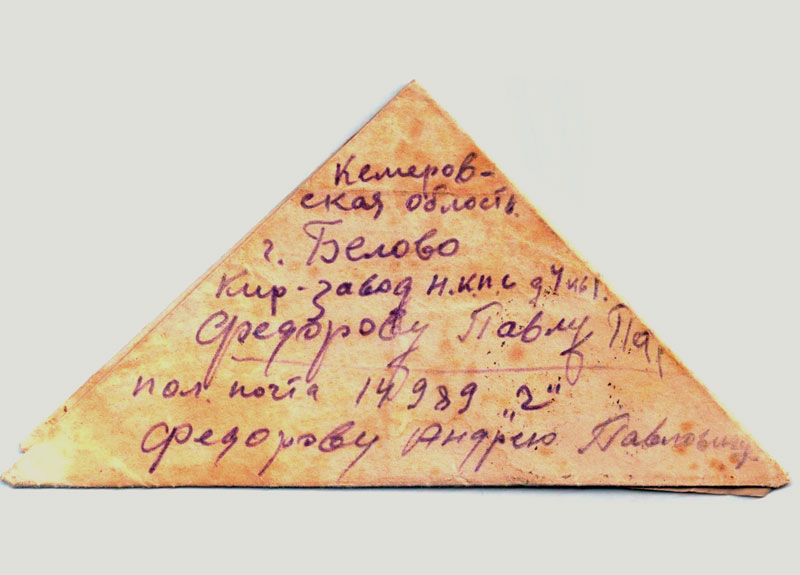 Кемеров-
ская область.
г. Белово
Кир-завод н.кпс д 4 кв 1.
Федорову Павлу Па
пол почта 14989 "г"
Федорову Андрею Павловичу